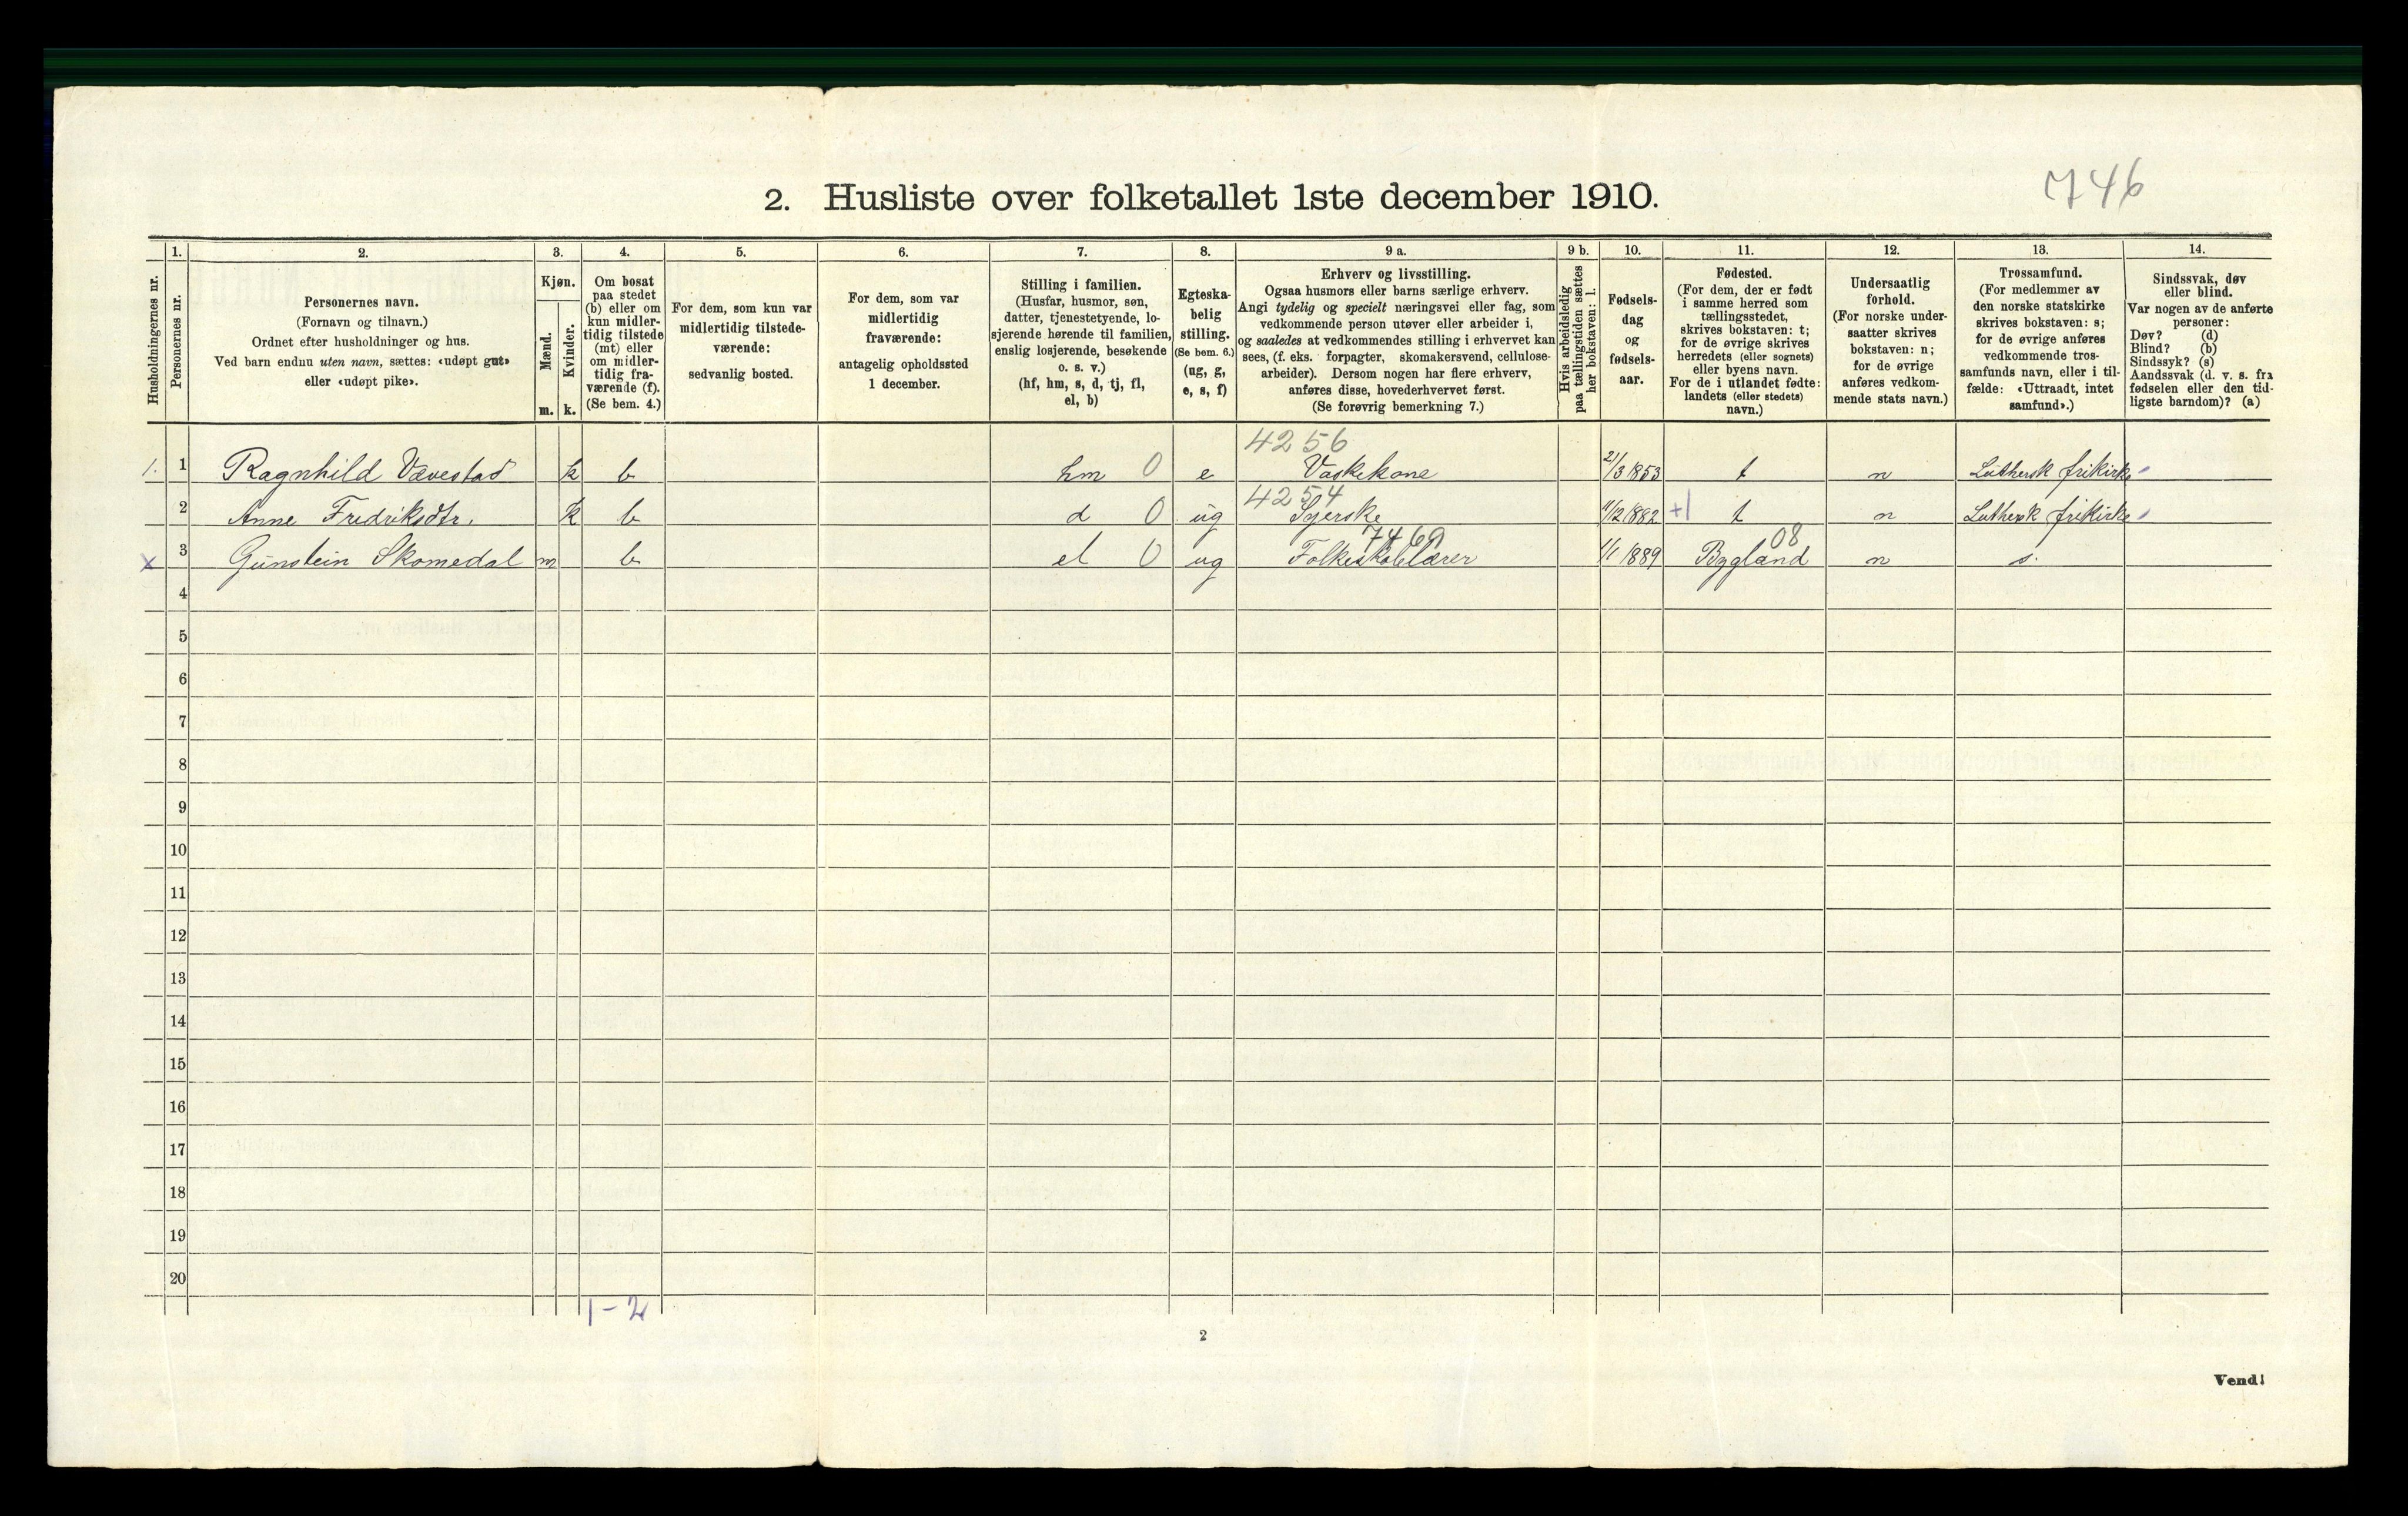 746
2. Husliste over folketallet 1ste december 1910.
Husholdningernes nr.
1. Personernes nr.
2. Personernes navn.
(Fornavn og tilnavn.)
Ordnet efter husholdninger og hus.
Ved barn endnu uten navn, sættes: «udøpt gut»
eller «udøpt pike».
3. Kjøn.
Mænd. m.
Kvinder. k.
4. Om bosat
paa stedet
(b) eller om
kun midler-
tidig tilstede
(mt) eller
om midler-
tidig fra-
værende (f).
(Se bem. 4.)
5. For dem, som kun var
midlertidig tilstede-
værende:
sedvanlig bosted.
6. For dem, som var
midlertidig
fraværende:
antagelig opholdssted
1 december.
7. Stilling i familien.
(Husfar, husmor, søn,
datter, tjenestetyende, lo-
sjerende hørende til familien,
enslig losjerende, besøkende
o. s. v.)
(hf, hm, s, d, tj, fl,
el, b)
8. Egteska-
belig
stilling.
(Se bem. 6.)
(ug, g,
e, s, f)
9 a. Erhverv og livsstilling.
Ogsaa husmors eller barns særlige erhverv.
Angi tydelig og specielt næringsvei eller fag, som
vedkommende person utøver eller arbeider i,
og saaledes at vedkommendes stilling i erhvervet kan
sees, (f. eks. forpagter, skomakersvend, cellulose-
arbeider). Dersom nogen har flere erhverv,
anføres disse, hovederhvervet først.
(Se forøvrig bemerkning 7.)
9 b. Hvis arbeidsledig
paa tællingstiden sættes
her bokstaven: l.
10. Fødsels-
dag
og
fødsels-
aar.
11. Fødested.
(For dem, der er født
i samme herred som
tællingsstedet,
skrives bokstaven: t;
for de øvrige skrives
herredets (eller sognets)
eller byens navn.
For de i utlandet fødte:
landets (eller stedets)
navn.)
12. Undersaatlig
forhold.
(For norske under-
saatter skrives
bokstaven: n;
for de øvrige
anføres vedkom-
mende stats navn.)
13. Trossamfund.
(For medlemmer av
den norske statskirke
skrives bokstaven: s;
for de øvrige anføres
vedkommende tros-
samfunds navn, eller i til-
fælde: «Uttraadt, intet
samfund».)
14. Sindssvak, døv
eller blind.
Var nogen av de anførte
personer:
Døv? (d)
Blind? (b)
Sindssyk? (s)
Aandssvak (d. v. s. fra
fødselen eller den tid-
ligste barndom)? (a)
4256
1. 1 Ragnhild Vævestad k b hm 0 e Vaskekone 21/3 1853 t n Luthersk frikirke
4254
2 Anne Fredriksdtr. k b d 0 ug Syerske 11/12 1882 +1 t n Luthersk frikirke
7469 08
x 3 Gunstein Skomedal m b el 0 ug Folkeskolelærer 1/1 1889 Bygland n s.
4
5
6
7
8
9
10
11
12
13
14
15
16
17
18
19
20
1-2
2
Vend!